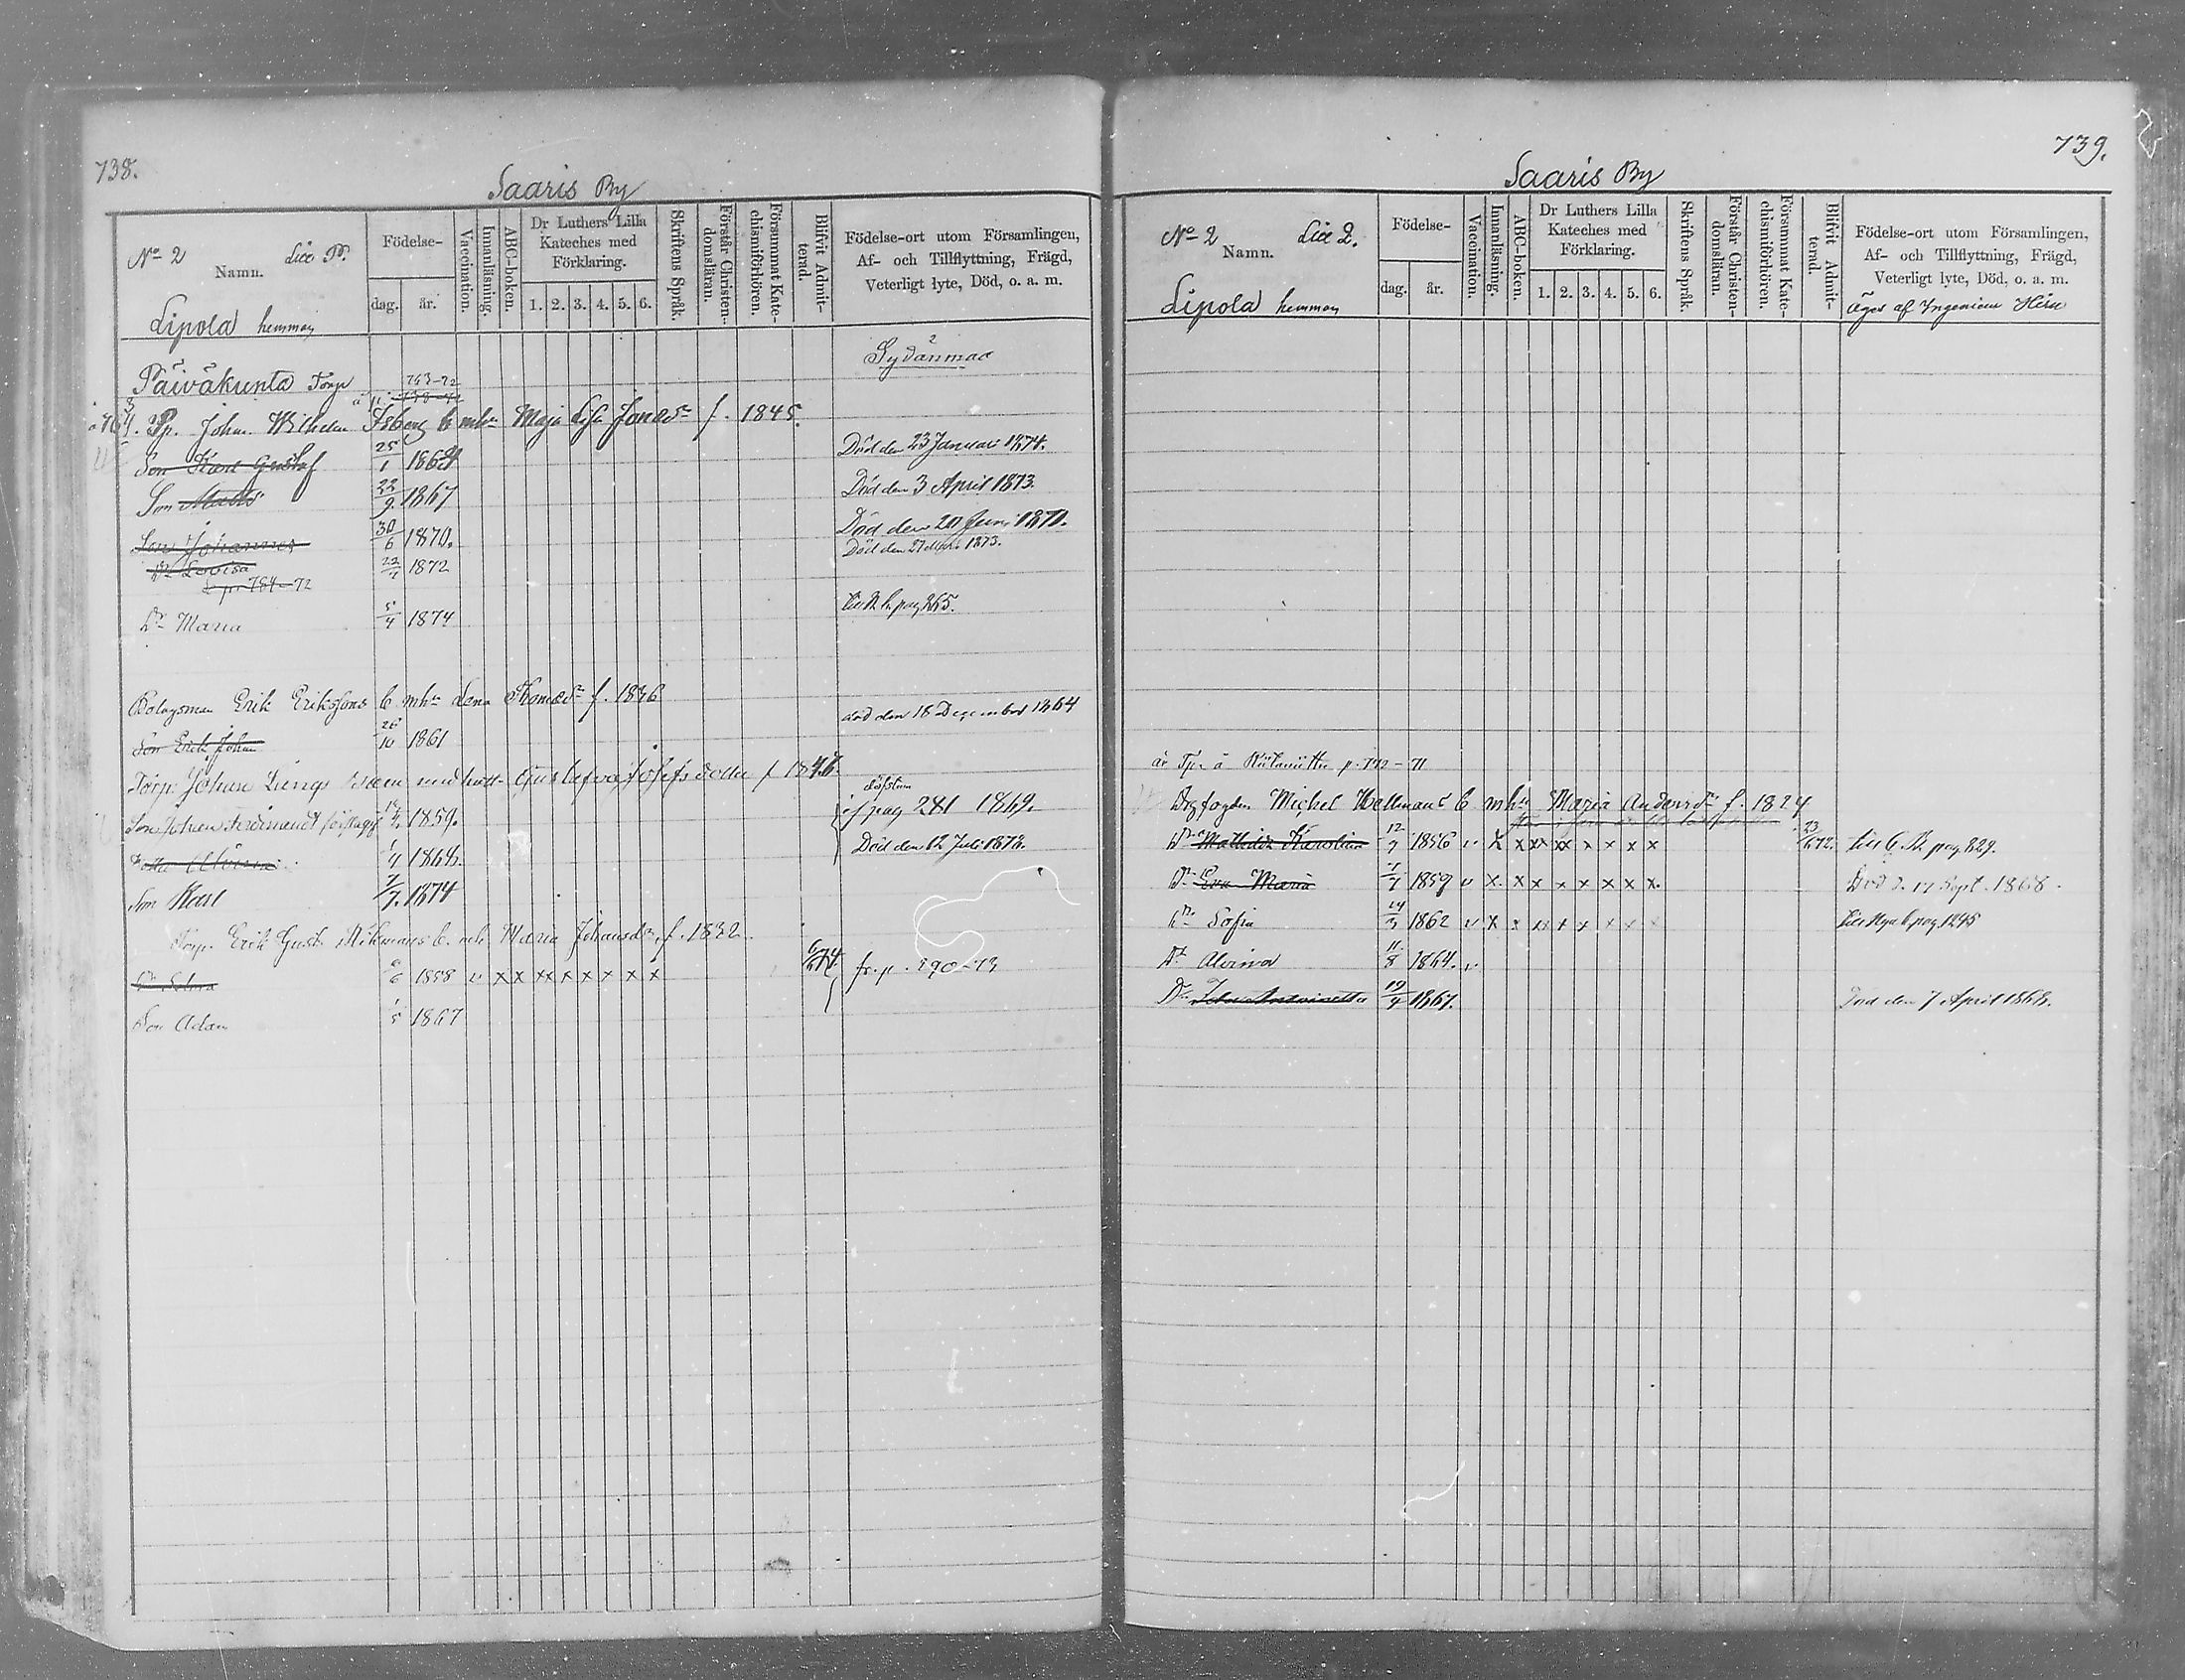 738.
Saaris By
No 2 Namn. Litt P.
Födelse-
dag. år.
Vaccination.
Innanläsning.
ABC-boken.
Dr Luthers Lilla Kateches med Förklaring.
1. 2. 3. 4. 5. 6.
Skriftens Språk.
Förstår Christendomsläran.
Försummat Katechismiförhören.
Blifvit Admitterad.
Födelse-ort utom Församlingen, Af- och Tillflyttning, Frägd, Veterligt lyte, Död, o. a. m.
Lipola hemman
Sydänmaa
Päiväkunta Torp 763-72
Johan Wilhelm Isberg b mhu Maja Lisa Jonasdr f. 1845.
Son Karl Gustaf 25/1 1864 Död den 23 Januari 1874.
Son Matts 22/9 1867 Död den 3 April 1873.
Son Johannes 30/6 1870. Död den 20 Juni 1871.
Dr Lovisa 22/1 1872 Död den 27 Mars 1873.
784-72
Dr Maria 5/4 1874 pag 265.
Bolagsman Erik Eriksons b mhu Lena Thomasdr f. 1836
Son Erik Johan 26/10 1861 död den 18 December 1864
Torp. Johan Lings med hust. Gustafva Josefsdotter f 184
Son Johan Ferdinand 1859. pag 281 1869.
Alvina 1/4 1868. Död den 12 Juli 1873.
Son Karl 7/7 1874
Torp. Erik Gust. b. mh. Maria Johansdr. f. 1832
Dr Selma /6 1858 v x x x x x x x x x 6/6 74 fr. p. 290-73
Son Adam 1/5 1867
739.
Saaris By
No 2 Namn. Litt 2.
Födelse-
dag. år.
Vaccination.
Innanläsning.
ABC-boken.
Dr Luthers Lilla Kateches med Förklaring.
1. 2. 3. 4. 5. 6.
Skriftens Språk.
Förstår Christendomsläran.
Försummat Katechismiförhören.
Blifvit Admitterad.
Födelse-ort utom Församlingen, Af- och Tillflyttning, Frägd, Veterligt lyte, Död, o. a. m.
Lipola hemman Äges af Ingenieur
är Tpr å p. 772-71
Michel Hellmans b mhu Maria Andersdr f. 1824
Dr Mathilda Karolina 12/7 1856 v x x x x x x x x x 23/6 72. pag 829.
Dr Eva Maria 1/7 1859 v x x x x x x x x Död d. 17 Sept. 1868.
Dr Sofia 24/3 1862 v x x x x x x x x pag 1245
Dr Alvina 11/8 1864. v
Dr Antoinetta 19/4 1867. Död den 7 April 1868.